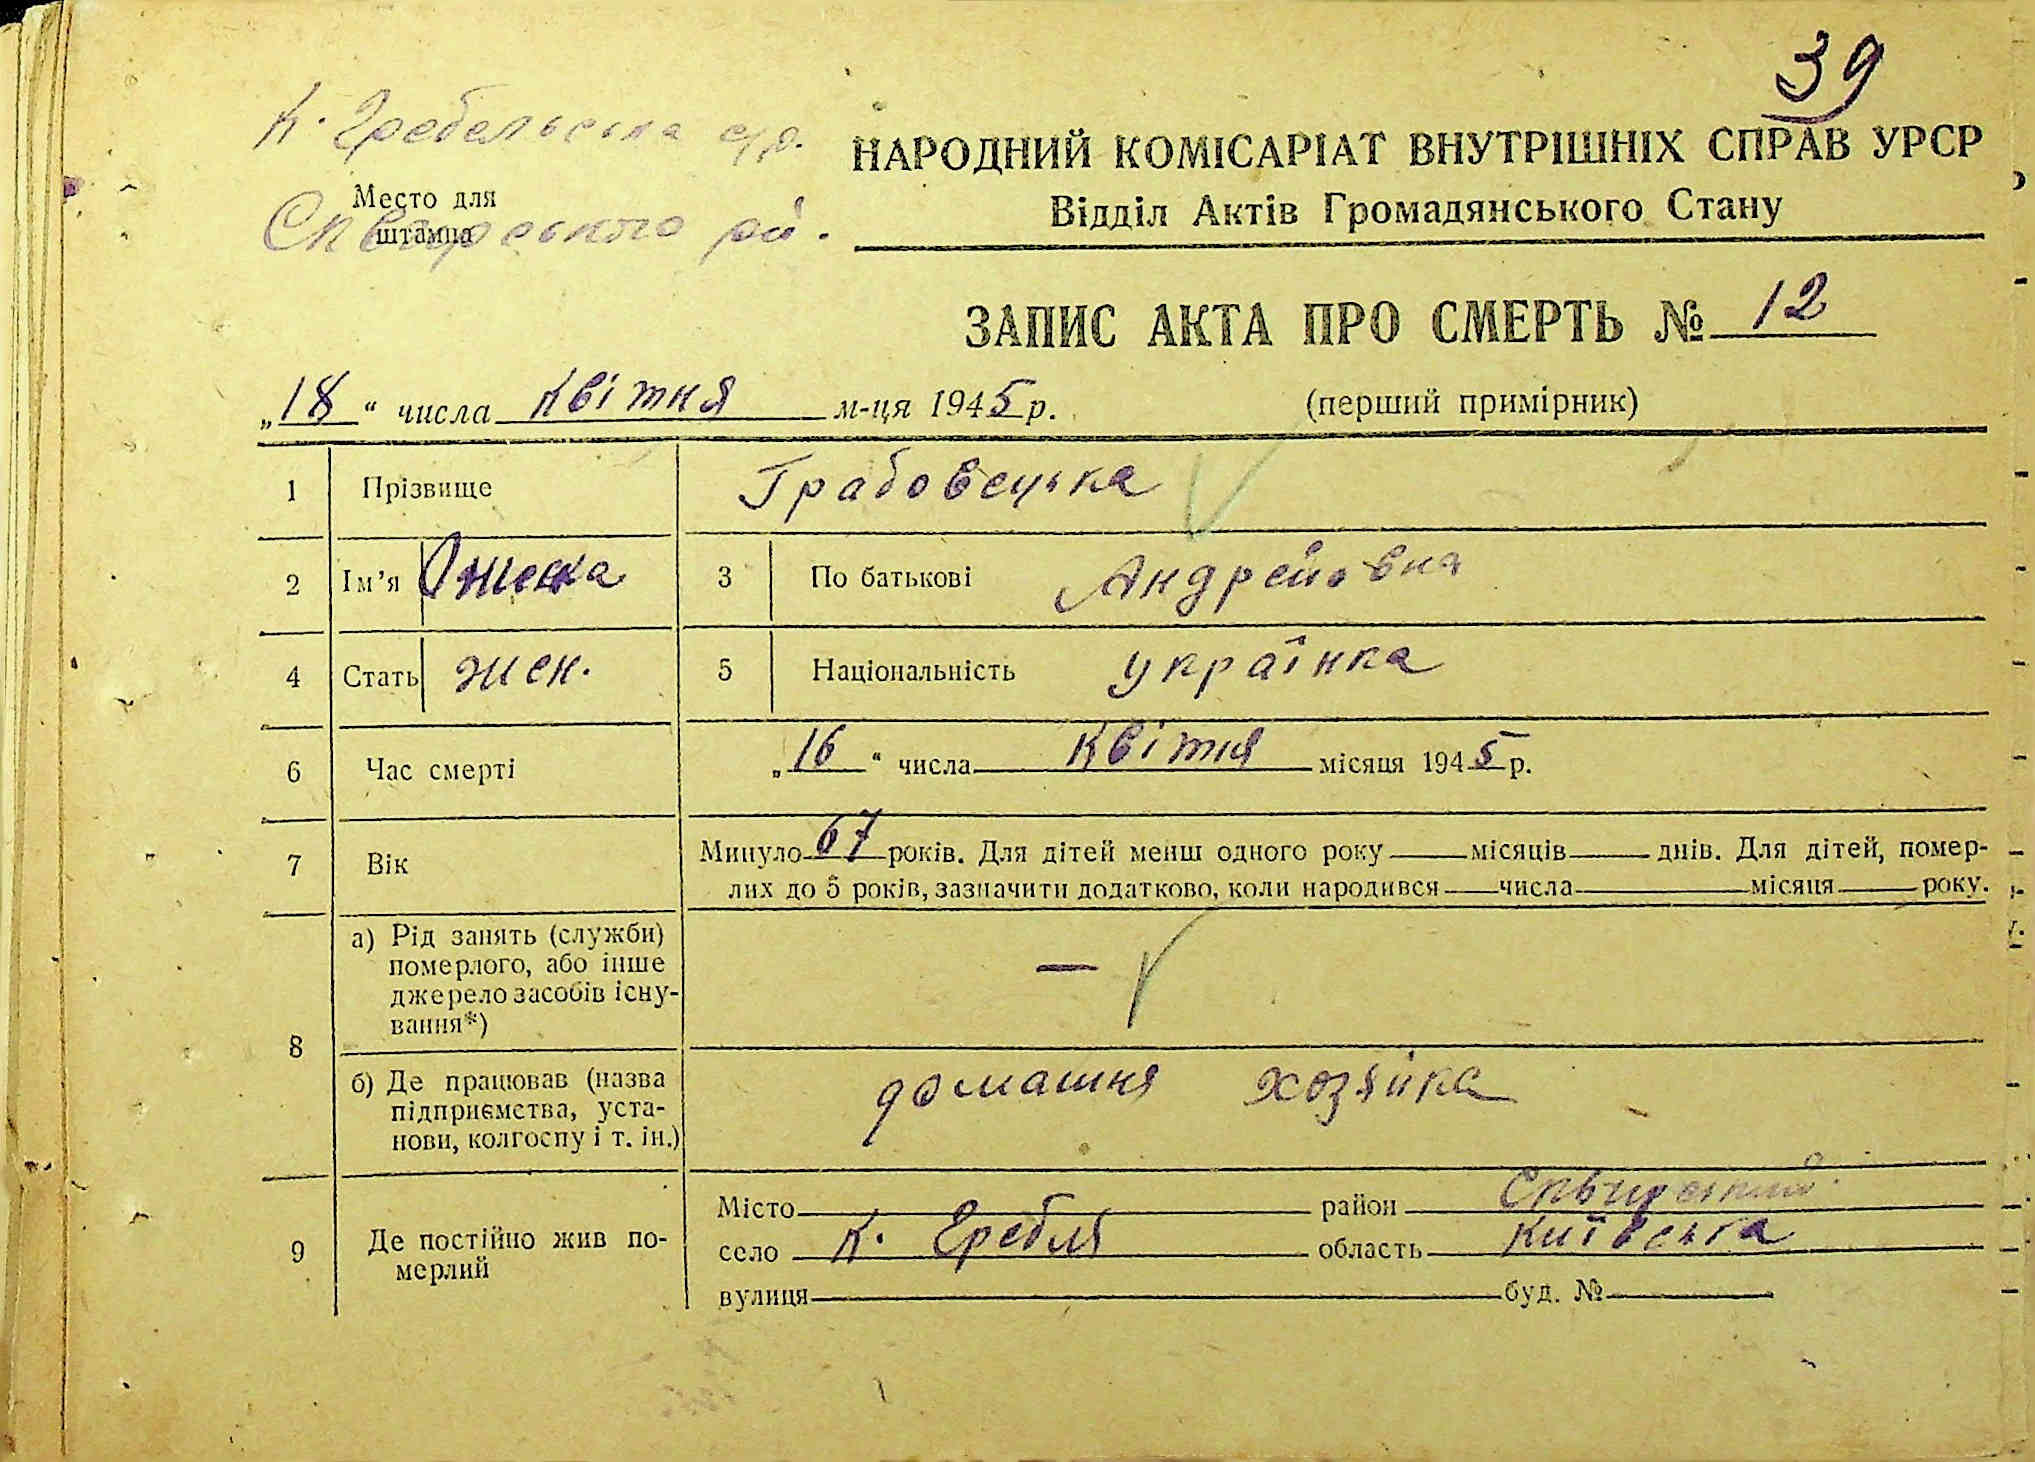 39
К. Гребельська с/р.
Сквирського рй.
Место для
штампа
НАРОДНИЙ КОМІСАРІАТ ВНУТРІШНІХ СПРАВ УРСР
Відділ Актів Громадянського Стану
ЗАПИС АКТА ПРО СМЕРТЬ № 12
„18“ числа квітня м-ця 1945 р. (перший примірник)
1 Прізвище Грабовецька
2 Ім’я 3 По батькові Андрейовна
4 Стать жен. 5 Національність українка
6 Час смерті „16“ числа квітня місяця 1945 р.
7 Вік Минуло 67 років. Для дітей менш одного року місяців днів. Для дітей, помер-
лих до 5 років, зазначити додатково, коли народився числа місяця року.
8 а) Рід занять (служби)
померлого, або інше
джерело засобів існу-
вання*) —
б) Де працював (назва
підприємства, уста-
нови, колгоспу і т. ін.) домашня хозяйка
9 Де постійно жив по-
мерлий
Місто район Сквирський
село К. Гребля область Київська
вулиця буд. №